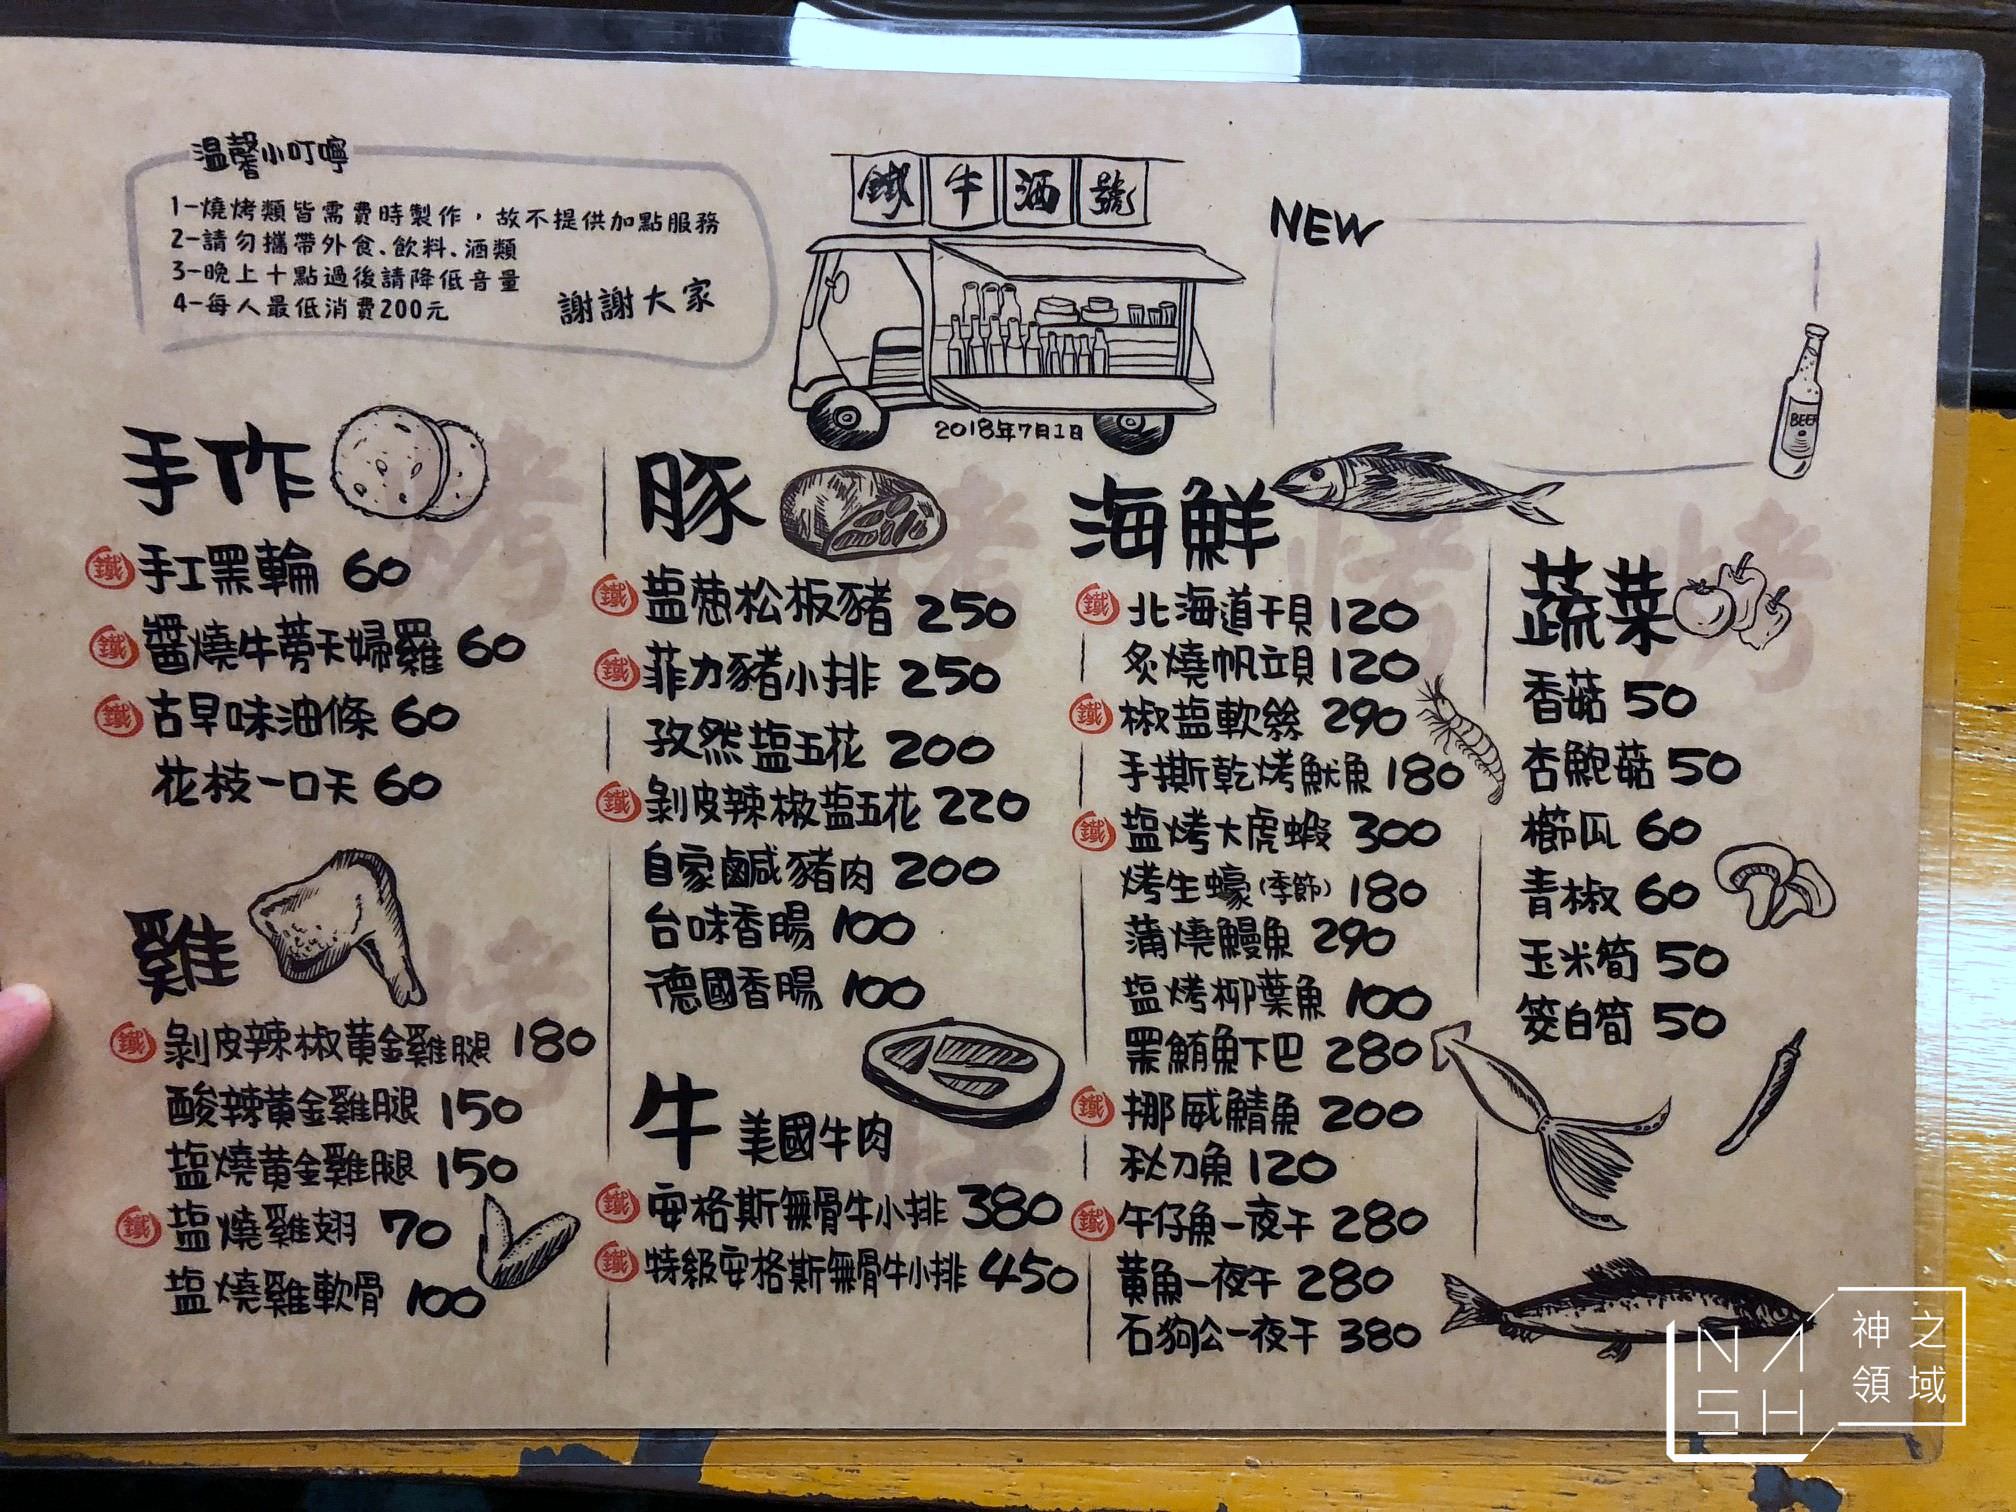 溫馨小叮嚀
1-燒烤類皆需費時製作，故不提供加點服務
2-請勿攜帶外食、飲料、酒類
3-晚上十點過後請降低音量
4-每人最低消費200元
謝謝大家
鐵牛酒號
2018年7月1日
NEW
BEER
手作
鐵 手工黑輪 60
鐵 醬燒牛蒡天婦羅 60
鐵 古早味油條 60
花枝一口天 60
雞
鐵 剝皮辣椒黃金雞腿 180
酸辣黃金雞腿 150
塩燒黃金雞腿 150
鐵 塩燒雞翅 70
塩燒雞軟骨 100
豚
鐵 塩蔥松板豬 250
鐵 菲力豬小排 250
孜然塩五花 200
鐵 剝皮辣椒塩五花 220
自家鹹豬肉 200
台味香腸 100
德國香腸 100
牛 美國牛肉
鐵 安格斯無骨牛小排 380
鐵 特級安格斯無骨牛小排 450
海鮮
鐵 北海道干貝 120
炙燒帆立貝 120
鐵 椒塩軟絲 290
手撕乾烤魷魚 180
鐵 塩烤大虎蝦 300
烤生蠔(季節) 180
蒲燒鰻魚 290
塩烤柳葉魚 100
黑鮪魚下巴 280
鐵 挪威鯖魚 200
秋刀魚 120
鐵 午仔魚一夜干 280
黃魚一夜干 280
石狗公一夜干 380
蔬菜
香菇 50
杏鮑菇 50
櫛瓜 60
青椒 60
玉米筍 50
筊白筍 50
烤
烤
烤
烤
烤
烤
NASH
神之領域